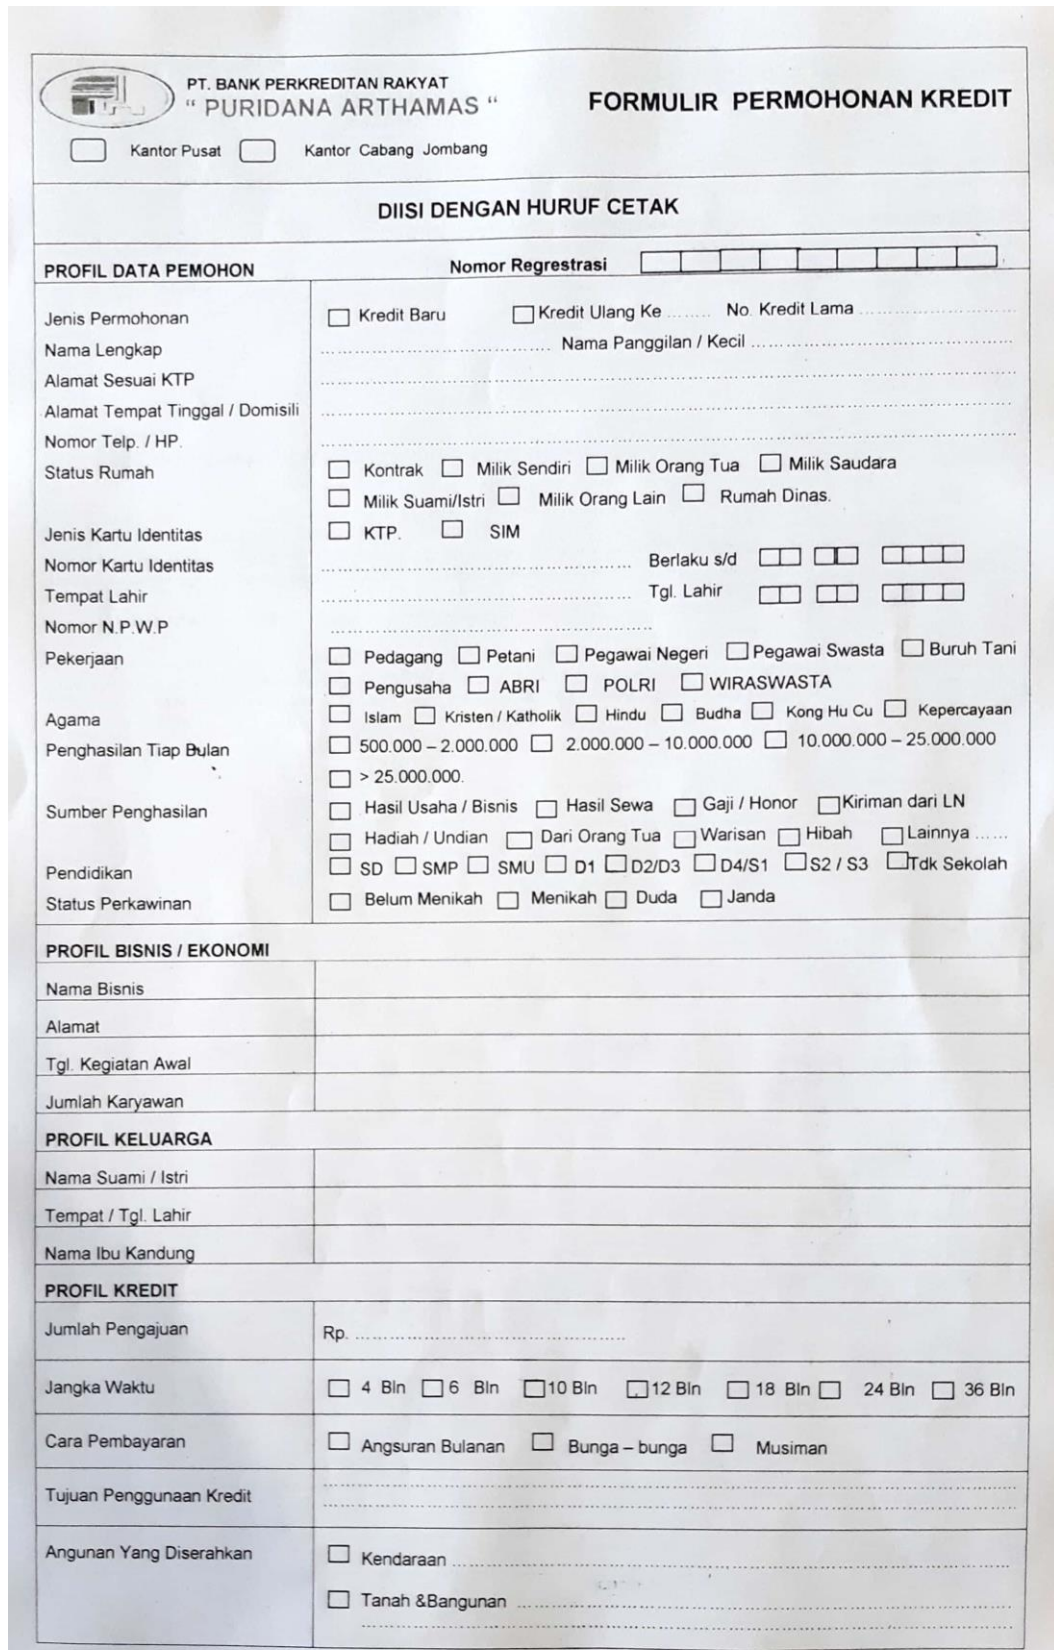 PT. BANK PERKREDITAN RAKYAT
“ PURIDANA ARTHAMAS “
FORMULIR PERMOHONAN KREDIT
Kantor Pusat Kantor Cabang Jombang
DIISI DENGAN HURUF CETAK
PROFIL DATA PEMOHON Nomor Regrestrasi
Jenis Permohonan Kredit Baru Kredit Ulang Ke ........ No. Kredit Lama ........................
Nama Lengkap ........................................ Nama Panggilan / Kecil ........................................
Alamat Sesuai KTP ................................................................................
Alamat Tempat Tinggal / Domisili ................................................................................
Nomor Telp. / HP. ................................................................................
Status Rumah Kontrak Milik Sendiri Milik Orang Tua Milik Saudara
Milik Suami/Istri Milik Orang Lain Rumah Dinas.
Jenis Kartu Identitas KTP. SIM
Nomor Kartu Identitas ........................................ Berlaku s/d
Tempat Lahir ........................................ Tgl. Lahir
Nomor N.P.W.P ........................................
Pekerjaan Pedagang Petani Pegawai Negeri Pegawai Swasta Buruh Tani
Pengusaha ABRI POLRI WIRASWASTA
Agama Islam Kristen / Katholik Hindu Budha Kong Hu Cu Kepercayaan
Penghasilan Tiap Bulan 500.000 – 2.000.000 2.000.000 – 10.000.000 10.000.000 – 25.000.000
> 25.000.000.
Sumber Penghasilan Hasil Usaha / Bisnis Hasil Sewa Gaji / Honor Kiriman dari LN
Hadiah / Undian Dari Orang Tua Warisan Hibah Lainnya ......
Pendidikan SD SMP SMU D1 D2/D3 D4/S1 S2 / S3 Tdk Sekolah
Status Perkawinan Belum Menikah Menikah Duda Janda
PROFIL BISNIS / EKONOMI
Nama Bisnis
Alamat
Tgl. Kegiatan Awal
Jumlah Karyawan
PROFIL KELUARGA
Nama Suami / Istri
Tempat / Tgl. Lahir
Nama Ibu Kandung
PROFIL KREDIT
Jumlah Pengajuan Rp. ........................................
Jangka Waktu 4 Bln 6 Bln 10 Bln 12 Bln 18 Bln 24 Bln 36 Bln
Cara Pembayaran Angsuran Bulanan Bunga – bunga Musiman
Tujuan Penggunaan Kredit ................................................................................
Angunan Yang Diserahkan Kendaraan ................................................................................
Tanah &Bangunan ................................................................................